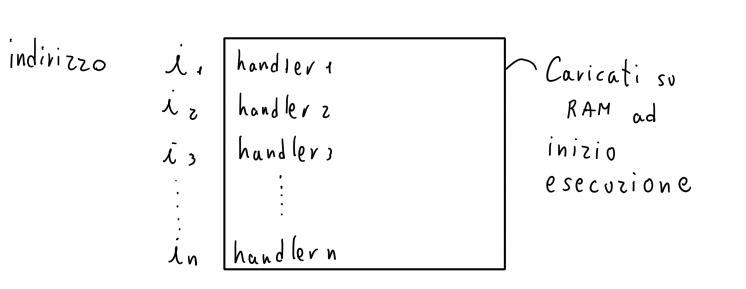 indirizzo i₁ handler 1
i₂ handler 2
i₃ handler 3
⋮ ⋮
iₙ handler n
Caricati su
RAM ad
inizio
esecuzione